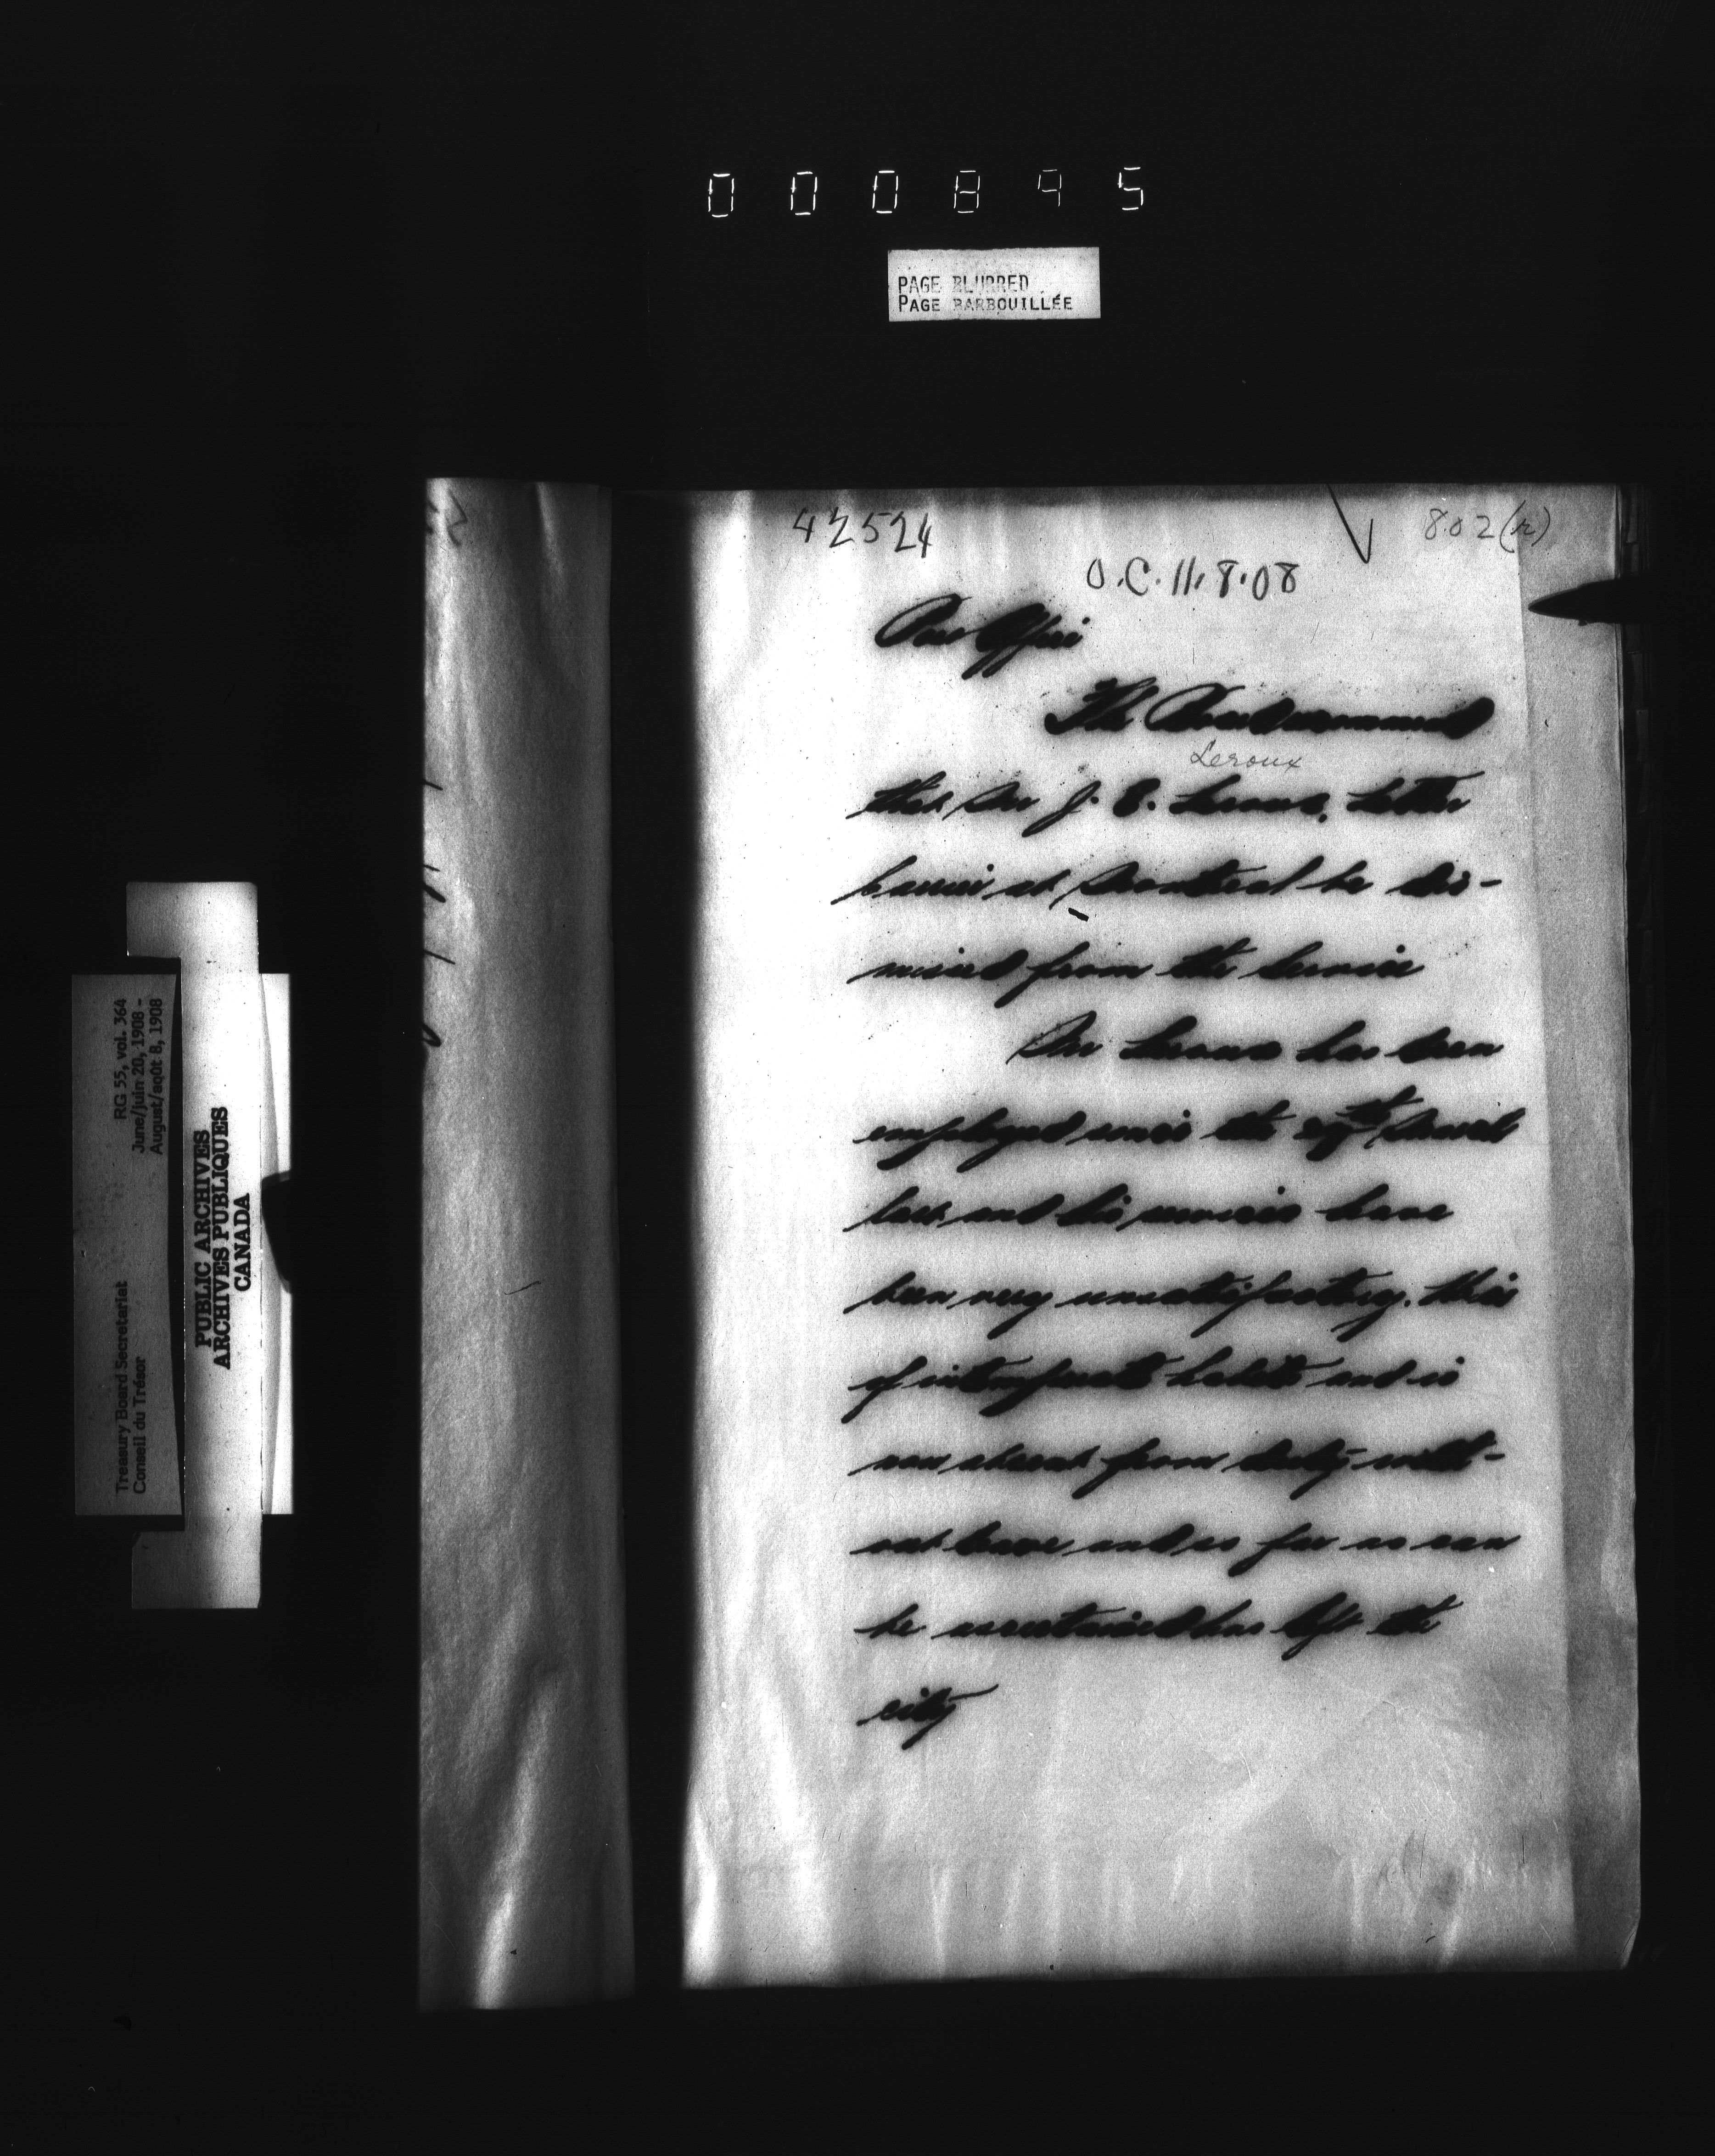 000895
PAGE BLURRED
PAGE BARBOUILLÉE
42524
802(r)
O.C. 11.8.08
Post Office
The Board recommend
Leroux
that Mr J. E. Leroux, Letter
Carrier at Montreal be dis-
missed from the Service
Mr Leroux has been
employed since the March
last and his services have
been very unsatisfactory. He is
of intemperate habits and is
now absent from duty with-
out leave and so far as can
be ascertained has left the
city
RG 55, vol. 364
June/juin 20, 1908 -
August/août 8, 1908
Treasury Board Secretariat
Conseil du Trésor
PUBLIC ARCHIVES
ARCHIVES PUBLIQUES
CANADA